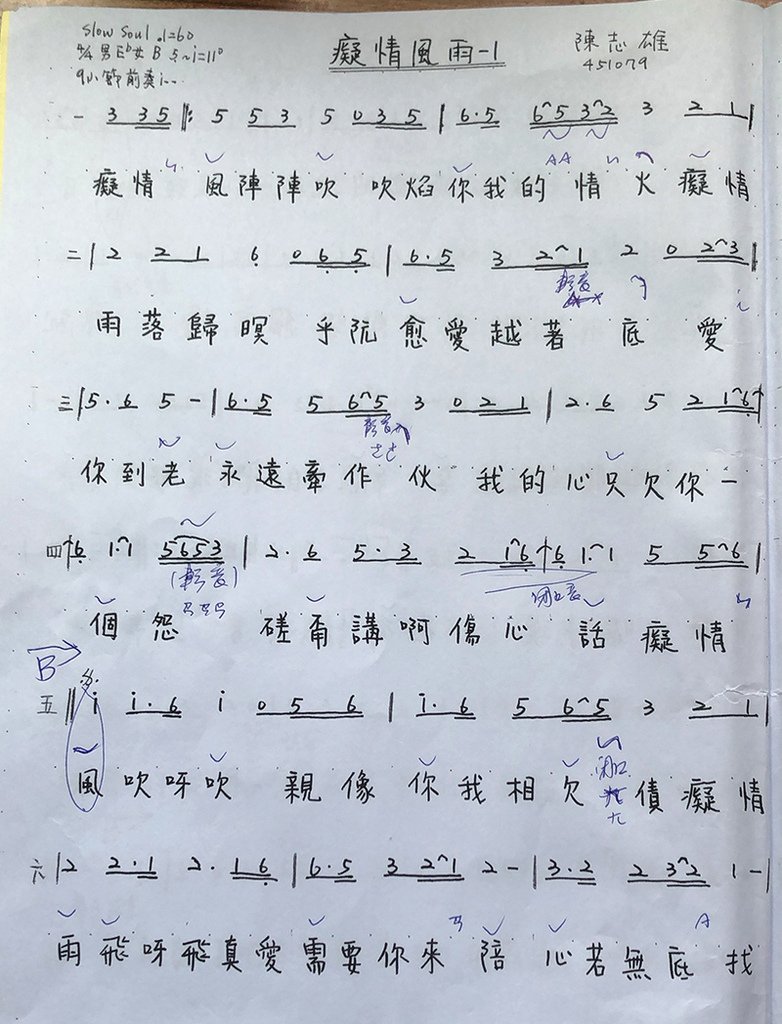 Slow Soul ♩=60
4/4 男E♭女B 5̣~i=11°
9小節前奏i..
癡情風雨-1
陳志雄
451079
一 3 3 5 ‖: 5 5 3 5 0 3 5 | 6·5 6 5 3 2 3 2 1 |
癡情 風陣陣吹 吹焰你我的情火癡情
二 | 2 2 1 6 0 6 5 | 6·5 3 2 1 2 0 2 3 |
輕音
雨落歸暝 乎阮愈愛越著底 愛
三 | 5·6 5 - | 6·5 5 6 5 3 0 2 1 | 2·6 5 2 1 6
你到老 永遠牽作伙 我的心只欠你一
四 6 1·1 5 6 5 3 | 2·6 5·3 2 1 6 6 1·1 5 5 6 |
(輕音) 閉口音
個怨 磋甭講啊傷心話癡情
B
五 ‖ i i·6 i 0 5 6 | i·6 5 6 5 3 2 1 |
閉口
風吹呀吹 親像你我相欠債癡情
六 | 2 2·1 2·1 6 | 6·5 3 2 1 2 - | 3·2 2 3 2 1 - |
雨飛呀飛真愛需要你來陪 心若無底找